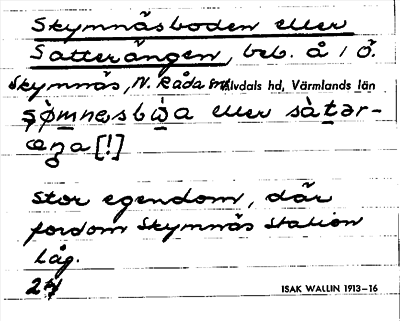 Skymnäsboden eller
Satterängen, beb. å 1 Ö.
Skymnäs, N. Råda sn Älvdals hd, Värmlands län
eller
[!]
Stor egendom, där
fordom Skymnäs station
låg.
ISAK WALLIN 1913–16